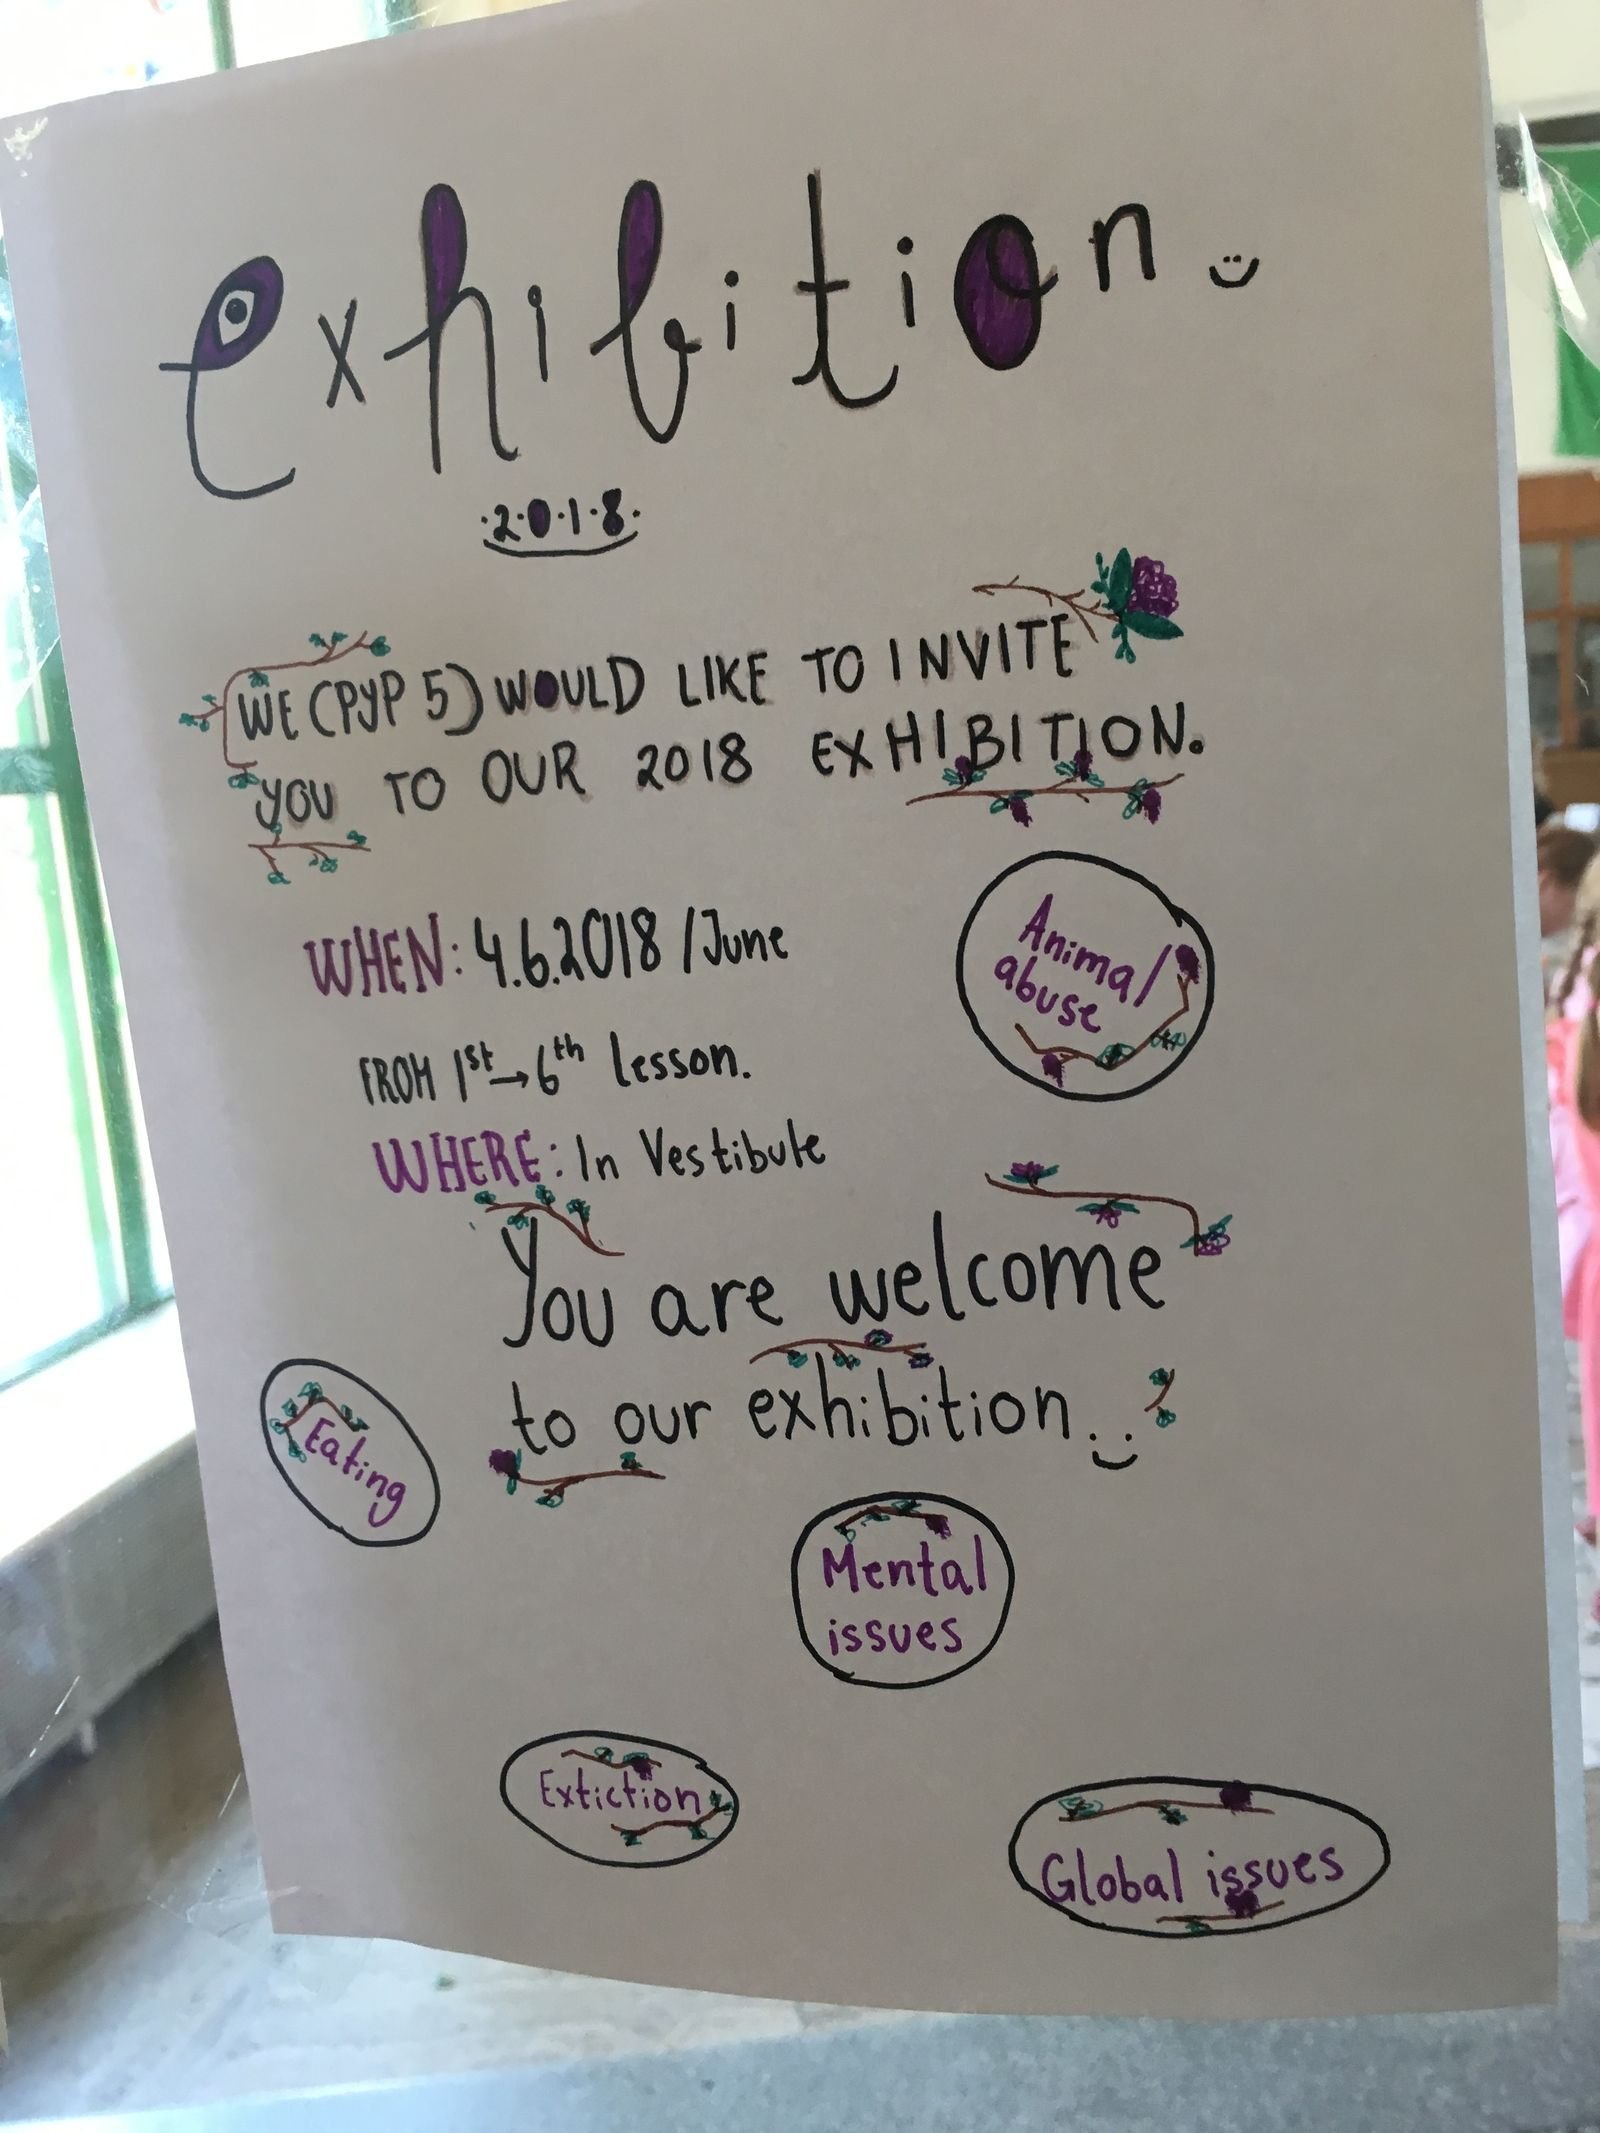 exhibition
·2·0·1·8·
WE (PYP 5) WOULD LIKE TO INVITE
YOU TO OUR 2018 EXHIBITION.
WHEN: 4.6.2018 /June
FROM 1st→6th lesson.
WHERE: In Vestibule
Animal
abuse
You are welcome
to our exhibition
Eating
Mental
issues
Extiction
Global issues